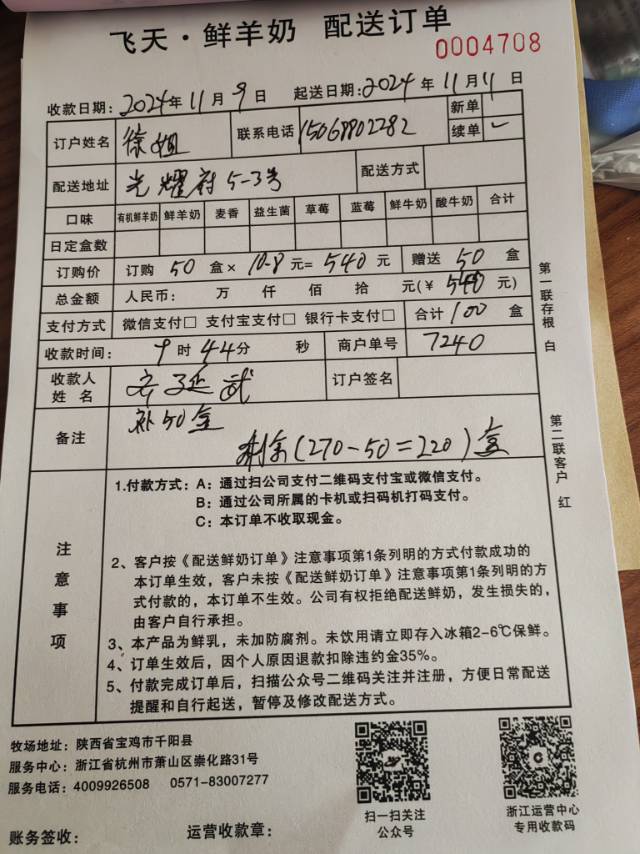 飞天·鲜羊奶 配送订单
0004708
收款日期：2024年11月9日 起送日期：2024年11月11日
订户姓名 徐姐 联系电话 15068802282 新单
续单 ✓
配送地址 光耀府5-3号 配送方式
口味 有机鲜羊奶 鲜羊奶 麦香 益生菌 草莓 蓝莓 鲜牛奶 酸牛奶 合计
日定盒数
订购价 订购 50 盒× 10.8 元= 540 元 赠送 50 盒
总金额 人民币： 万 仟 佰 拾 元(￥ 540 元)
支付方式 微信支付□ 支付宝支付□ 银行卡支付□ 合计 100 盒
收款时间： 9 时 44分 秒 商户单号 7240
收款人姓名 订户签名
备注 补50盒
剩余(270-50=220)盒
第一联存根 白
第二联客户 红
注意事项
1.付款方式：A：通过扫公司支付二维码支付宝或微信支付。
B：通过公司所属的卡机或扫码机打码支付。
C：本订单不收取现金。
2、客户按《配送鲜奶订单》注意事项第1条列明的方式付款成功的
本订单生效，客户未按《配送鲜奶订单》注意事项第1条列明的方
式付款的，本订单不生效。公司有权拒绝配送鲜奶，发生损失的，
由客户自行承担。
3、本产品为鲜乳，未加防腐剂。未饮用请立即存入冰箱2-6℃保鲜。
4、订单生效后，因个人原因退款扣除违约金35%。
5、付款完成订单后，扫描公众号二维码关注并注册，方便日常配送
提醒和自行起送，暂停及修改配送方式。
牧场地址：陕西省宝鸡市千阳县
服务中心：浙江省杭州市萧山区崇化路31号
服务电话：4009926508 0571-83007277
扫一扫关注
公众号
浙江运营中心
专用收款码
账务签收： 运营收款章：